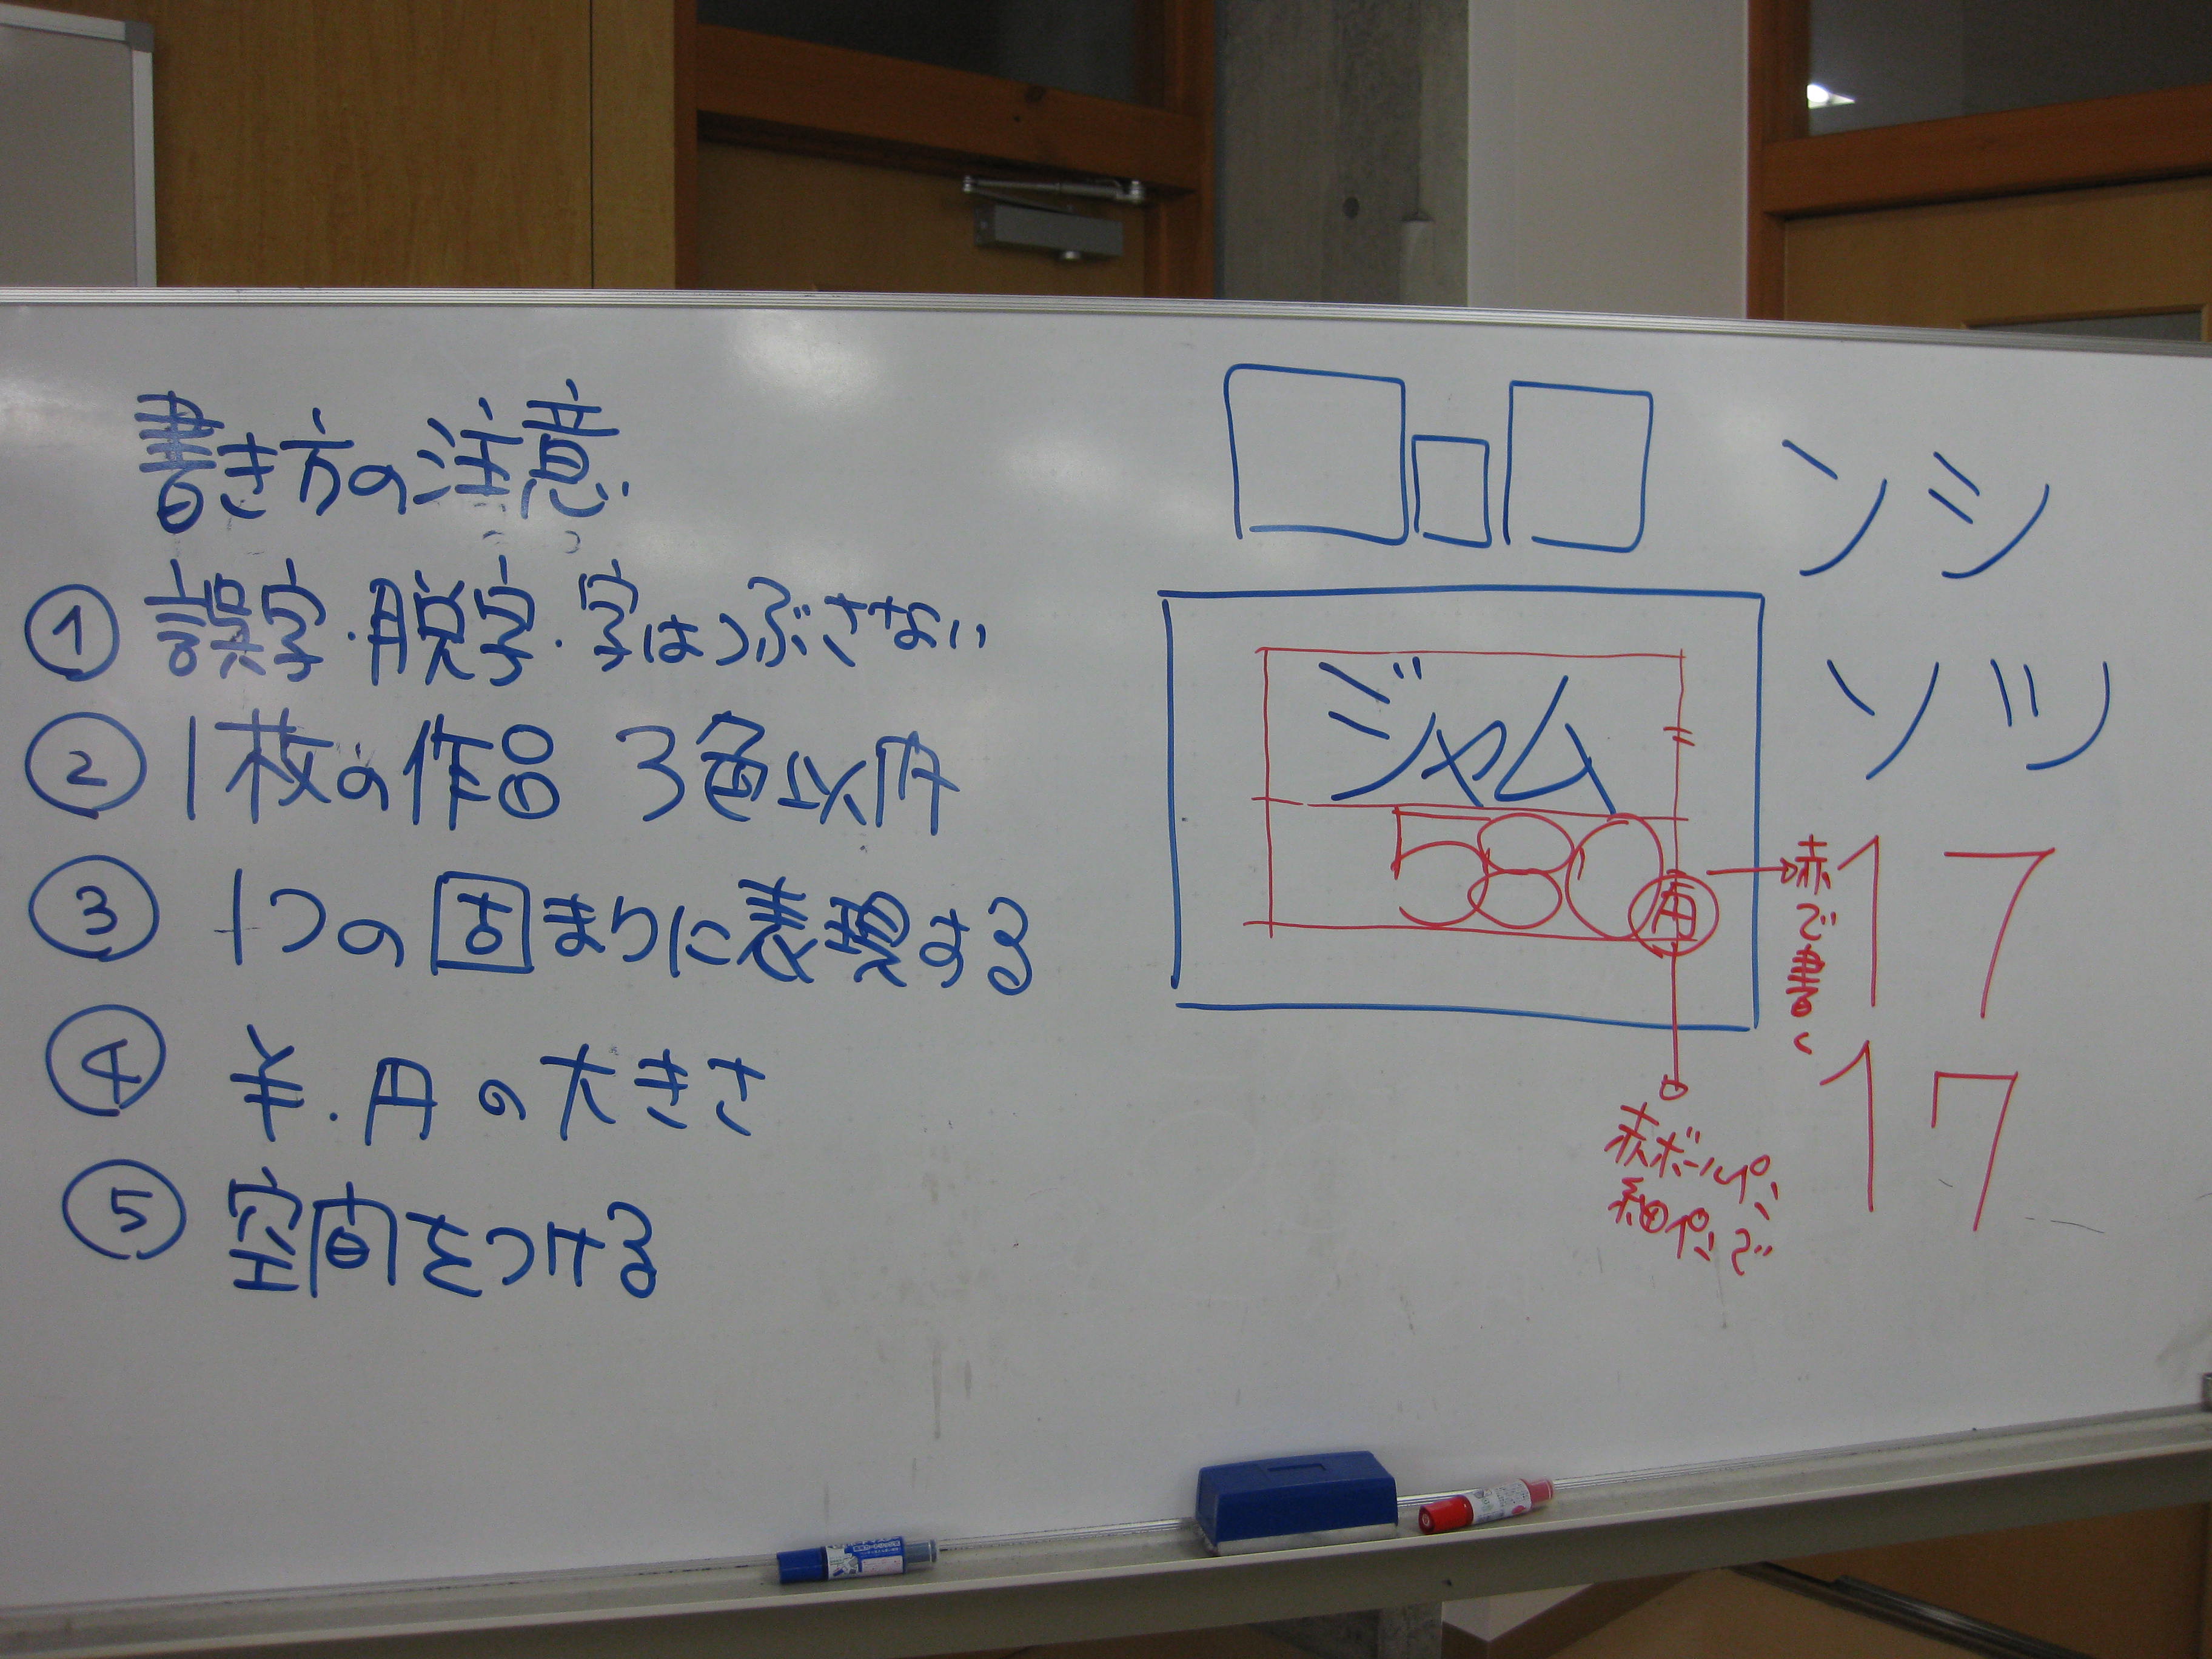 書き方の注意
① 誤字・脱字・字はつぶさない
② 1枚の作品 3色以内
③ 1つの固まりに表現する
④ ¥・円の大きさ
⑤ 空間をつける
ンシ
ソツ
ジャム
580円
赤で書く
17
17
赤ボールペン
細ペンで